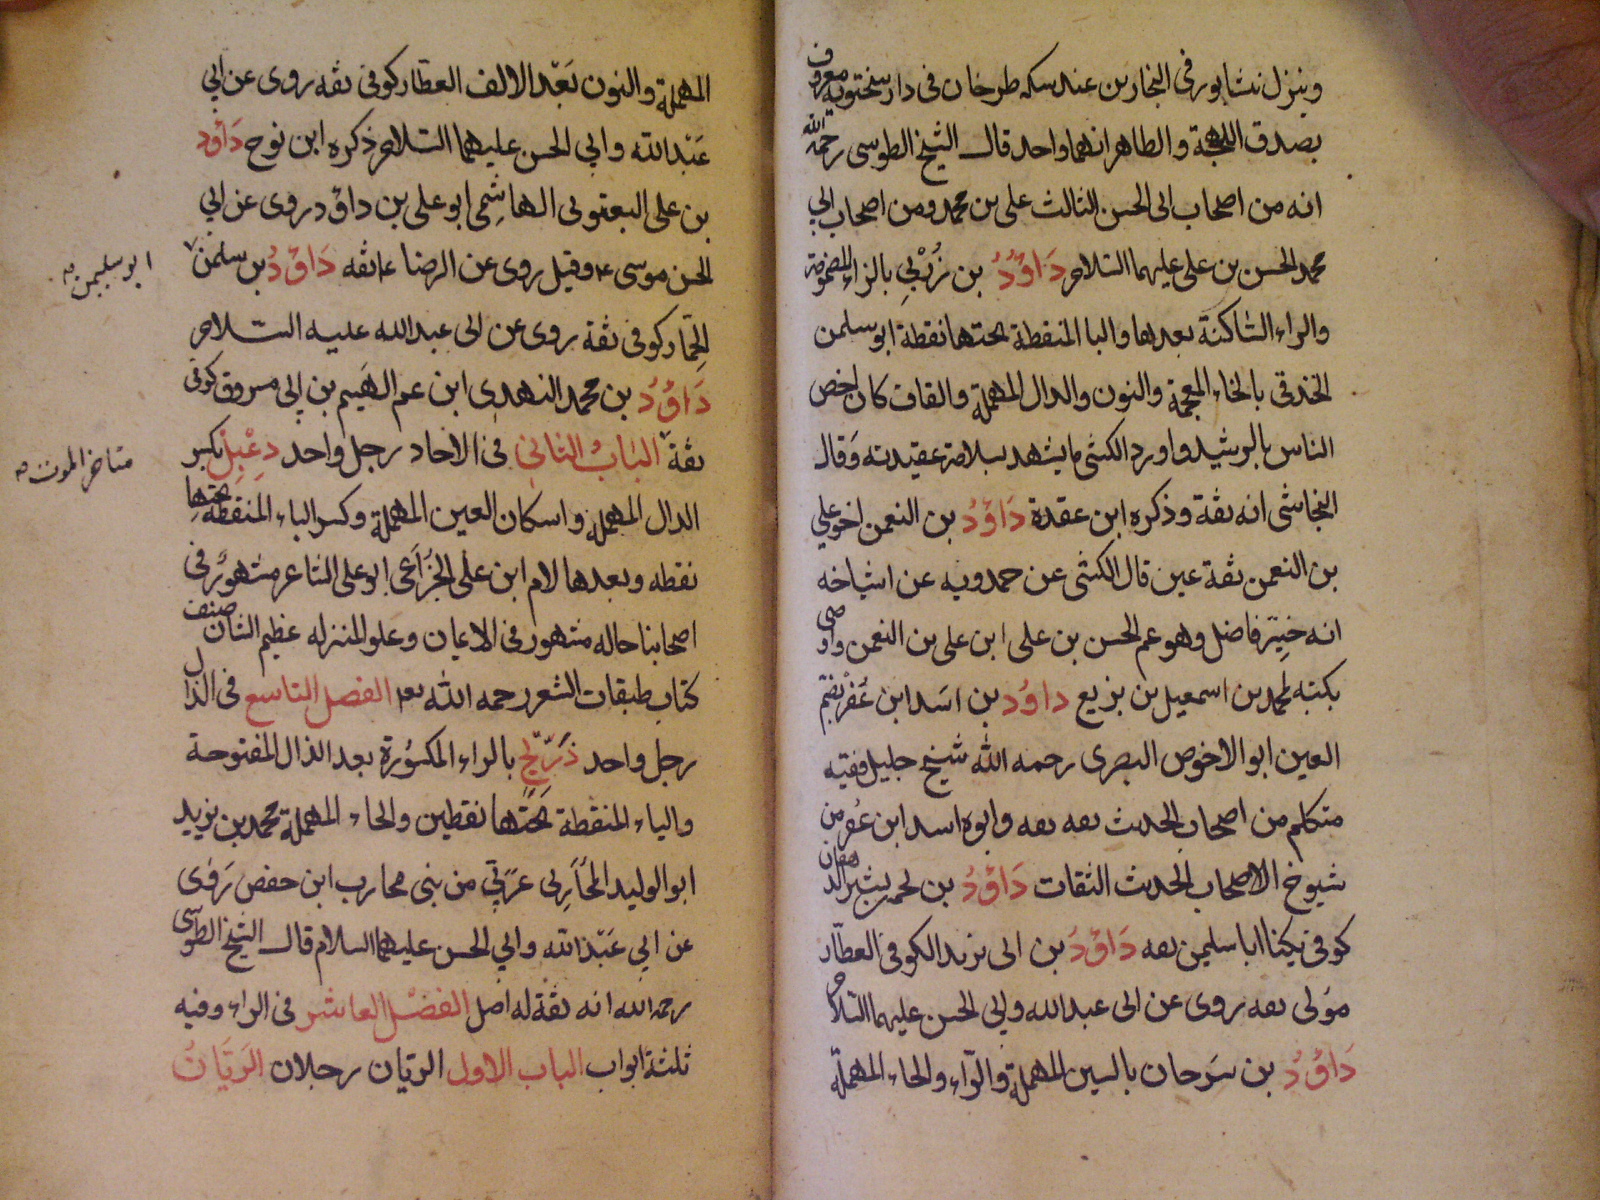 وينزل نيشابور في النجارين عند سكه طرخان في دار سختويه معروف
بصدق اللهجة والظاهر انهما واحد قال الشيخ الطوسى رحمه الله
انه من اصحاب ابى الحسن الثالث على بن محمد ومن اصحاب ابي
محمد الحسن بن على عليهما السلام دَاوُدُ بن زُرْبي بالزاء المضمومة
والراء الساكنة بعدها والبا المنقطة تحتها نقطة ابو سلمن
الخندقى بالخاء المعجمة والنون والدال المهملة والقاف كان اخص
الناس بالرشيد واورد الكشى ما يشهد بسلامة عقيدته وقال
النجاشى انه ثقة وذكره ابن عقدة دَاوُدُ بن النعمن اخو علي
بن النعمن ثقة عين قال الكشى عن حمدويه عن اشياخه
انه خيّر فاضل وهو عم الحسن بن على ابن على بن النعمن واوصى
بكتبه لمحمد بن اسمعيل بن بزيع داوُد بن اسَد ابن عُفْر بضم
العين ابو الاخوص البصرى رحمه الله شيخ جليل فقيه
متكلم من اصحاب الحديث ثقه ثقه وابوه اسد ابن عُفر من
شيوخ الاصحاب الحديث الثقات دَاوُدُ بن
كوفى يكنا ابا سليمن ثقه دَاوُدُ بن ابى يزيد الكوفى العطّار
مَولى ثقه روى عن ابى عبد الله وابي الحسن عليهما السّلام
دَاوُدُ بن سَرحان بالسين المهملة والرّاء والحاء المهملة
المهملة والنون بَعْد الالف العطّار كوفى ثقه روى عن ابي
عَبْد الله وابي الحسن عليهما السّلام ذكره ابن نوح دَاوُد
بن على اليعقوبى الهاشِمى ابو على بن داوُد روى عن ابي
الحسن موسى ع وقيل روى عن الرضا ع ثقه دَاوُدُ بن سلمن
الحِمّار كوفى ثقة روى عن ابى عبد الله عليه السّلام
دَاوُدُ بن محمد النهدى ابن عم الهَيثم بن ابي مسروق كوفى
ثقة البَابُ الثانى فى الاحاد رجل واحد دِعْبِل بكسر
الدال المهملة واسكان العين المهملة وكسر الباء المنقطة تحتها
نقطه وبعدها لام ابن على الخُزَاعى ابو على الشاعر مشهورٌ فى
اصحابنا حاله مشهور فى الايمان وعلو المنزله عظيم الشان صنف
كتاب طبقات الشعر رحمه الله الفصل التاسع فى الذال
رجل واحد ذَرِيح بالراء المكسُورة بعد الذال المفتوحة
والياء المنقطة تحتها نقطين والحاء المهملة محمد بن يزيد
ابو الوليد المُحَارِبى عَرَبي من بنى محارب ابن حفص رَوى
عن ابي عَبْد الله وابي الحسن عليهما السلام قال الشيخ الطوسى
رحمه الله انه ثقة له اصل الفصْل العاشر فى الراء وفيه
ثلثة ابواب الباب الاول الريّان رجلان الرَيَّانُ
ابو سليمن
متاخر الموت